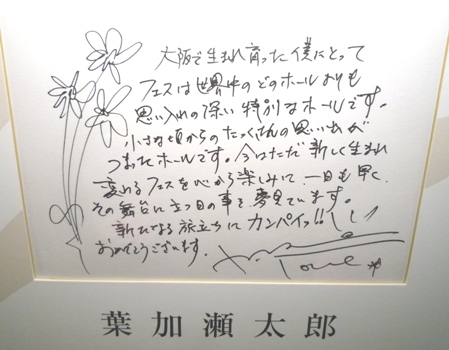 大阪で生まれ育った僕にとって
フェスは世界中のどのホールよりも
思い入れの深い特別なホールです。
小さな頃からのたくさんの思い出が
つまったホールです。今はただ新しく生まれ
変わるフェスを心から楽しみに、一日も早く
その舞台に立つ日の事を夢見ています。
新たなる旅立ちにカンパイッ!!
おめでとうございます。
葉加瀬太郎